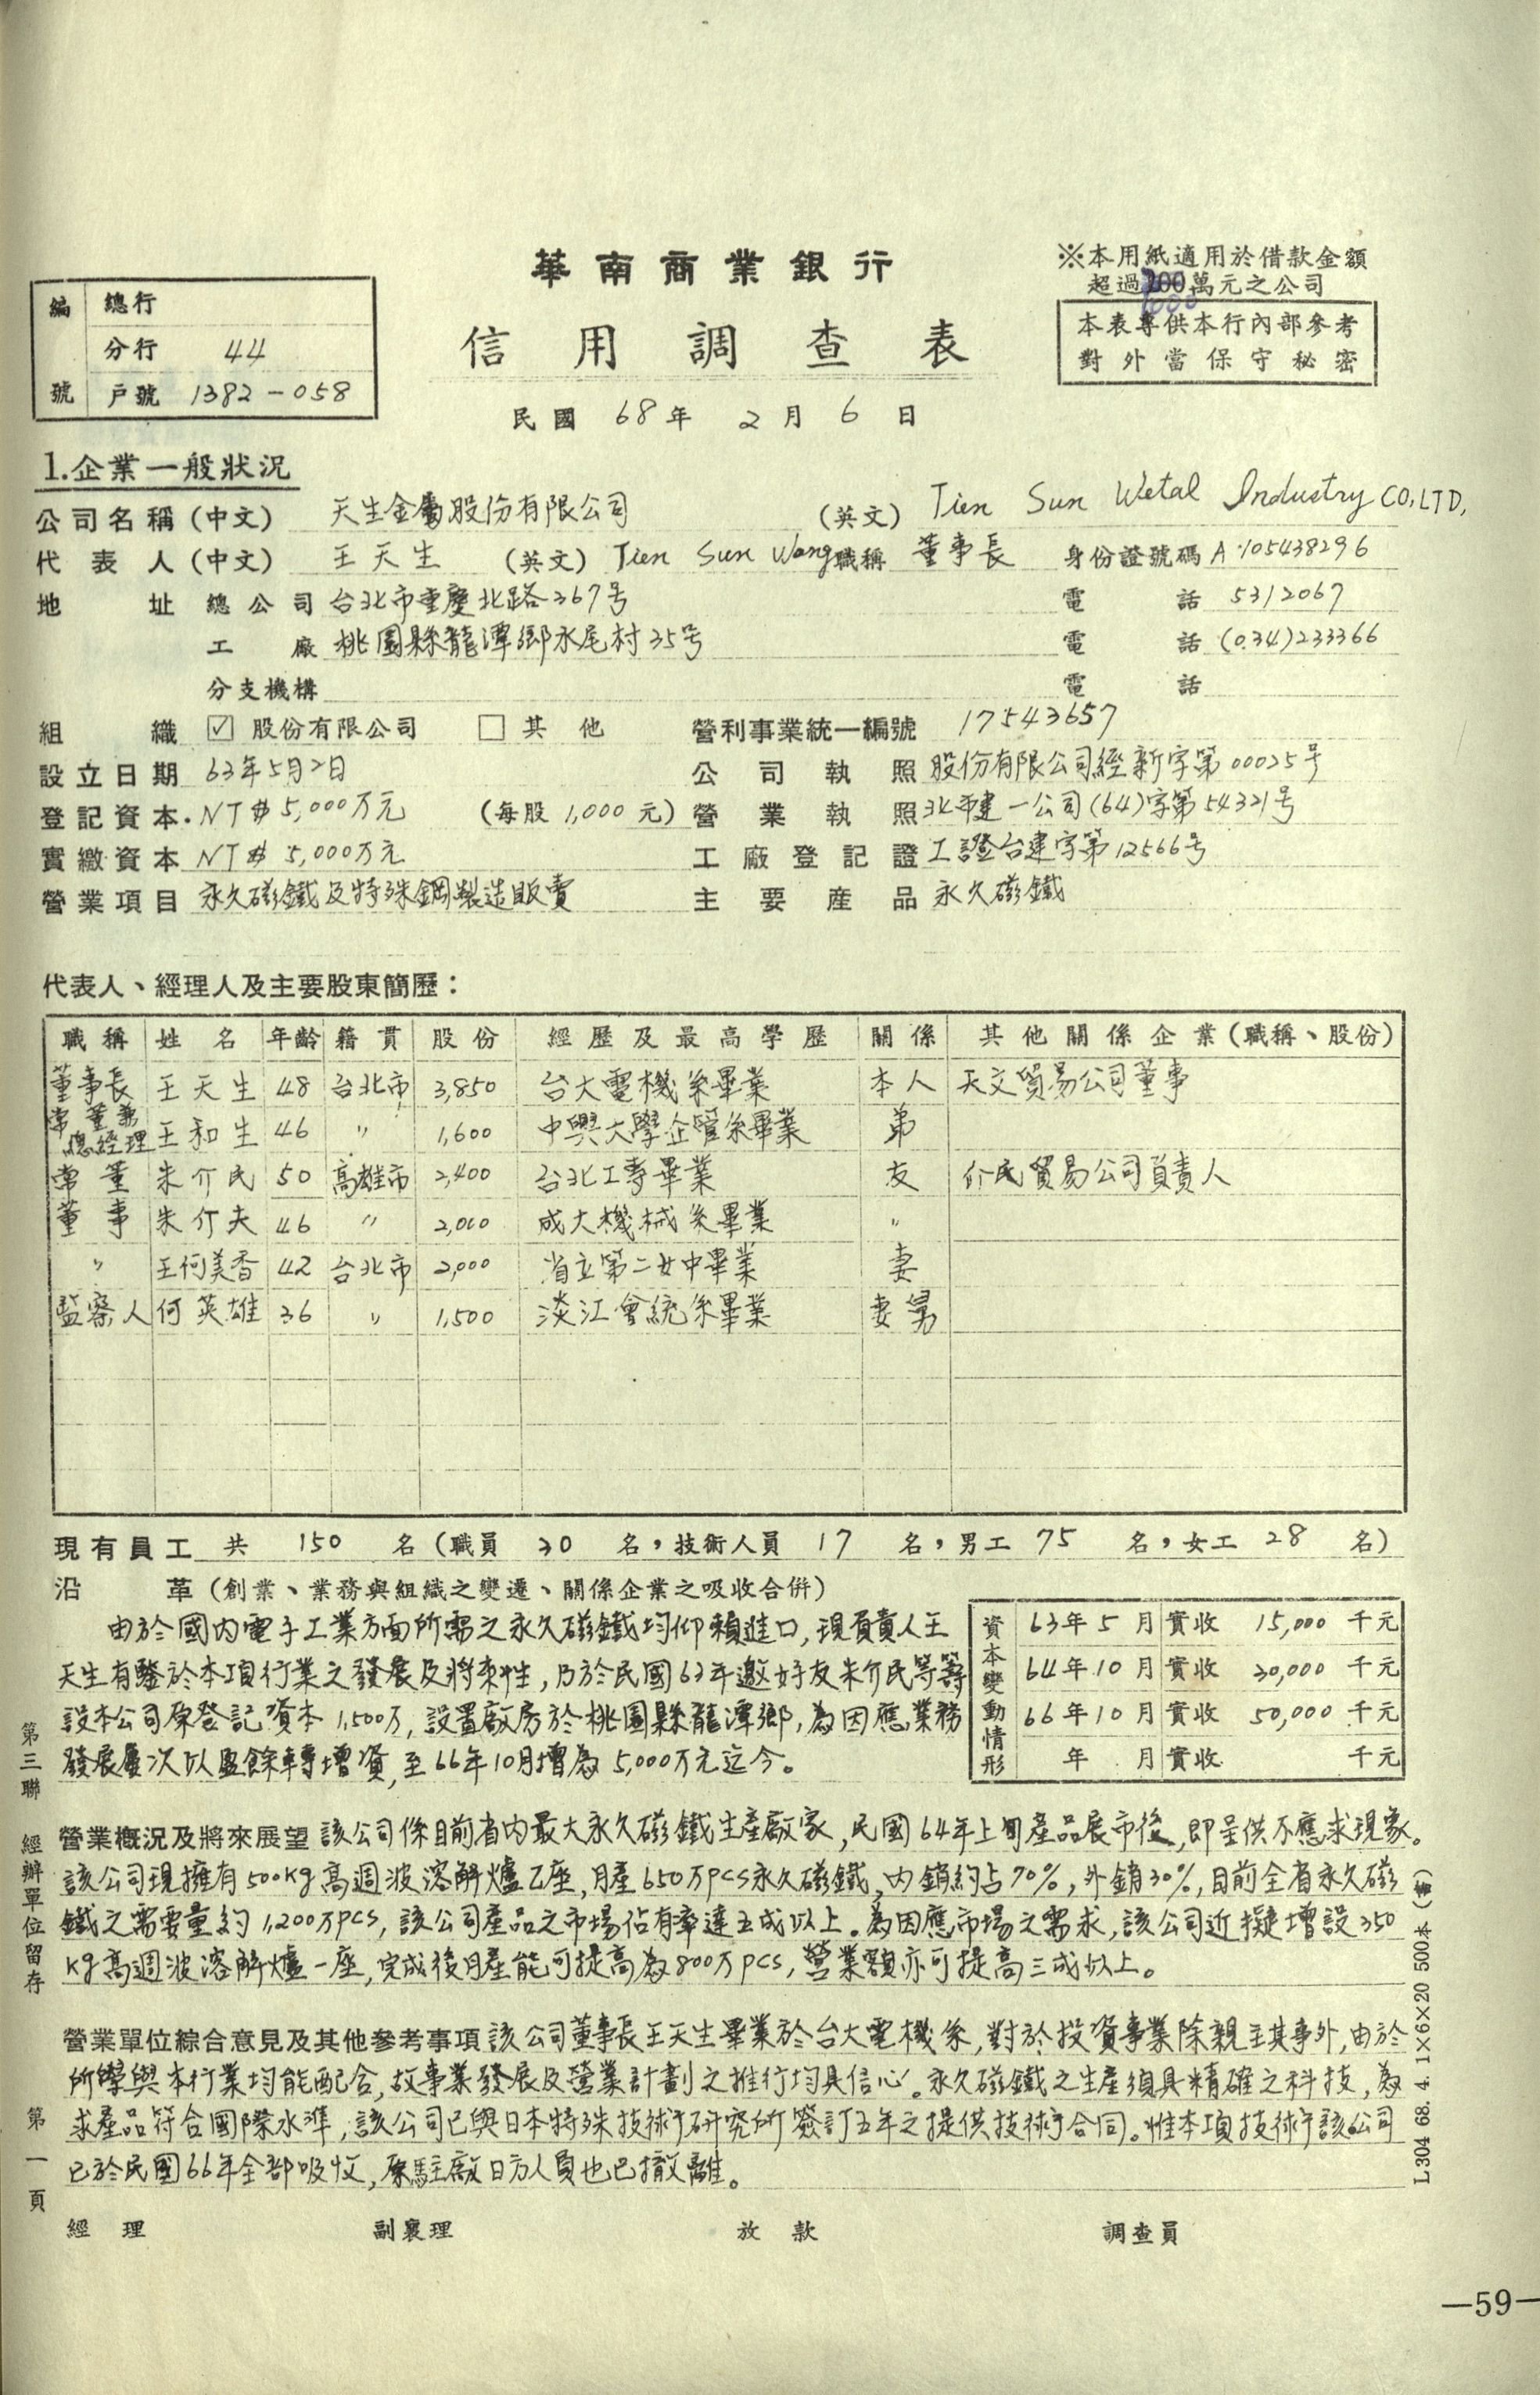 華南商業銀行
信用調查表
民國 68年 2月 6日
※本用紙適用於借款金額
超過 萬元之公司
本表專供本行內部參考
對外當保守秘密
編號
總行
分行 44
戶號 1382-058
1.企業一般狀況
公司名稱(中文) 天生金屬股份有限公司 (英文) Tien Sun Wetal Industry CO,LTD,
代表人(中文) 王天生 (英文) Tien Sun Wang 職稱 董事長 身份證號碼 A105438296
地址 總公司 台北市重慶北路367号 電話 5312067
工廠 桃園縣龍潭鄉永尾村35号 電話 (034)233366
分支機構 電話
組織 ☑ 股份有限公司 □ 其他 營利事業統一編號 17543657
設立日期 63年5月2日 公司執照 股份有限公司經新字第00025号
登記資本 NT$ 5,000万元 (每股 1,000 元) 營業執照 北市建一公司(64)字第54321号
實繳資本 NT$ 5,000万元 工廠登記證 工證台建字第12566号
營業項目 永久磁鐵及特殊鋼製造販賣 主要產品 永久磁鐵
代表人、經理人及主要股東簡歷：
職稱 姓名 年齡 籍貫 股份 經歷及最高學歷 關係 其他關係企業(職稱、股份)
董事長 王天生 48 台北市 3,850 台大電機系畢業 本人 天文貿易公司董事
常董兼總經理 王和生 46 〃 1,600 中興大學企管系畢業 弟
常董 朱介民 50 高雄市 2,400 台北工專畢業 友 介民貿易公司負責人
董事 朱介夫 46 〃 2,000 成大機械系畢業 〃
〃 王何美香 42 台北市 2,000 省立第二女中畢業 妻
監察人 何英雄 36 〃 1,500 淡江會統系畢業 妻舅
現有員工 共 150 名(職員 30 名，技術人員 17 名，男工 75 名，女工 28 名)
沿革(創業、業務與組織之變遷、關係企業之吸收合併)
由於國內電子工業方面所需之永久磁鐵均仰賴進口，現負責人王
天生有鑒於本項行業之發展及將來性，乃於民國63年邀好友朱介民等籌
設本公司原登記資本1,500万，設置廠房於桃園縣龍潭鄉，為因應業務
發展屢次以盈餘轉增資，至66年10月增為5,000万元迄今。
資本變動情形
63年 5月 實收 15,000 千元
64年 10月 實收 30,000 千元
66年 10月 實收 50,000 千元
年 月 實收 千元
營業概況及將來展望 該公司係目前省內最大永久磁鐵生產廠家，民國64年上旬產品展市後，即呈供不應求現象。
該公司現擁有500Kg高週波溶解爐乙座，月產650万PCS永久磁鐵，內銷約占70%，外銷30%，目前全省永久磁
鐵之需要量約1,200万PCS，該公司產品之市場佔有率達五成以上。為因應市場之需求，該公司近擬增設350
Kg高週波溶解爐一座，完成後月產能可提高為800万PCS，營業額亦可提高三成以上。
營業單位綜合意見及其他參考事項 該公司董事長王天生畢業於台大電機系，對於投資事業除親主其事外，由於
所學與本行業均能配合，故事業發展及營業計劃之推行均具信心。永久磁鐵之生產須具精確之科技，為
求產品符合國際水準，該公司已與日本特殊技術研究所簽訂五年之提供技術合同。惟本項技術該公司
已於民國66年全部吸收，原駐廠日方人員也已撤離。
經理 副襄理 放款 調查員
第三聯 經辦單位留存 第一頁
L304 68. 4. 1×6×20 500本
—59—